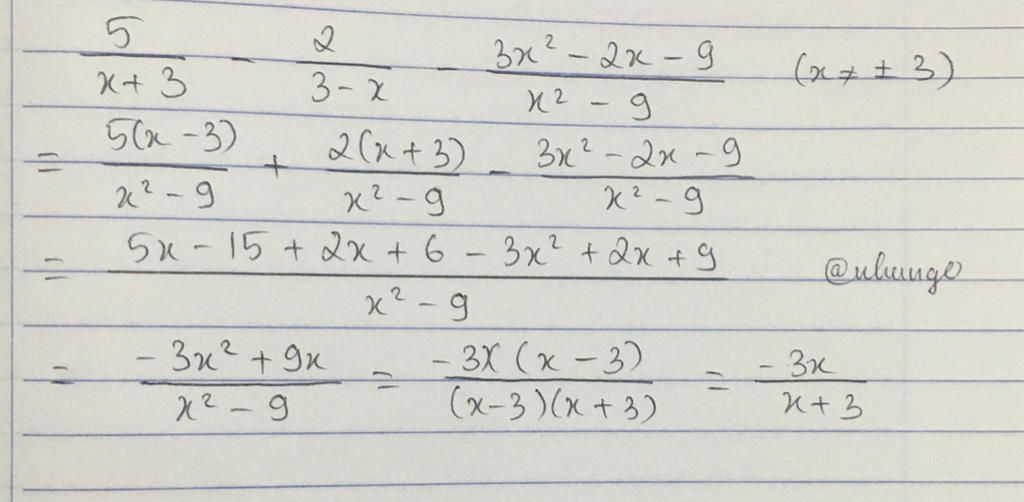 5/(x + 3) - 2/(3 - x) - (3x² - 2x - 9)/(x² - 9) (x ≠ ± 3)
= 5(x - 3)/(x² - 9) + 2(x + 3)/(x² - 9) - (3x² - 2x - 9)/(x² - 9)
= (5x - 15 + 2x + 6 - 3x² + 2x + 9)/(x² - 9)
= (-3x² + 9x)/(x² - 9) = -3x(x - 3)/((x-3)(x + 3)) = -3x/(x + 3)